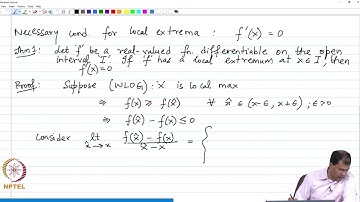 Necessary cond for local extrema : f'(x) = 0
Thm1: Let f be a real-valued fn. differentiable on the open
interval 'I'. If f has a local extremum at x ∈ I, then
f'(x) = 0
Proof: Suppose (WLOG): x is local max
⇒ f(x) ≥ f(x̂) ∀ x̂ ∈ (x-ε, x+ε) ; ε>0
⇒ f(x̂) - f(x) ≤ 0
Consider lt x̂→x f(x̂) - f(x) / x̂ - x = {
NPTEL